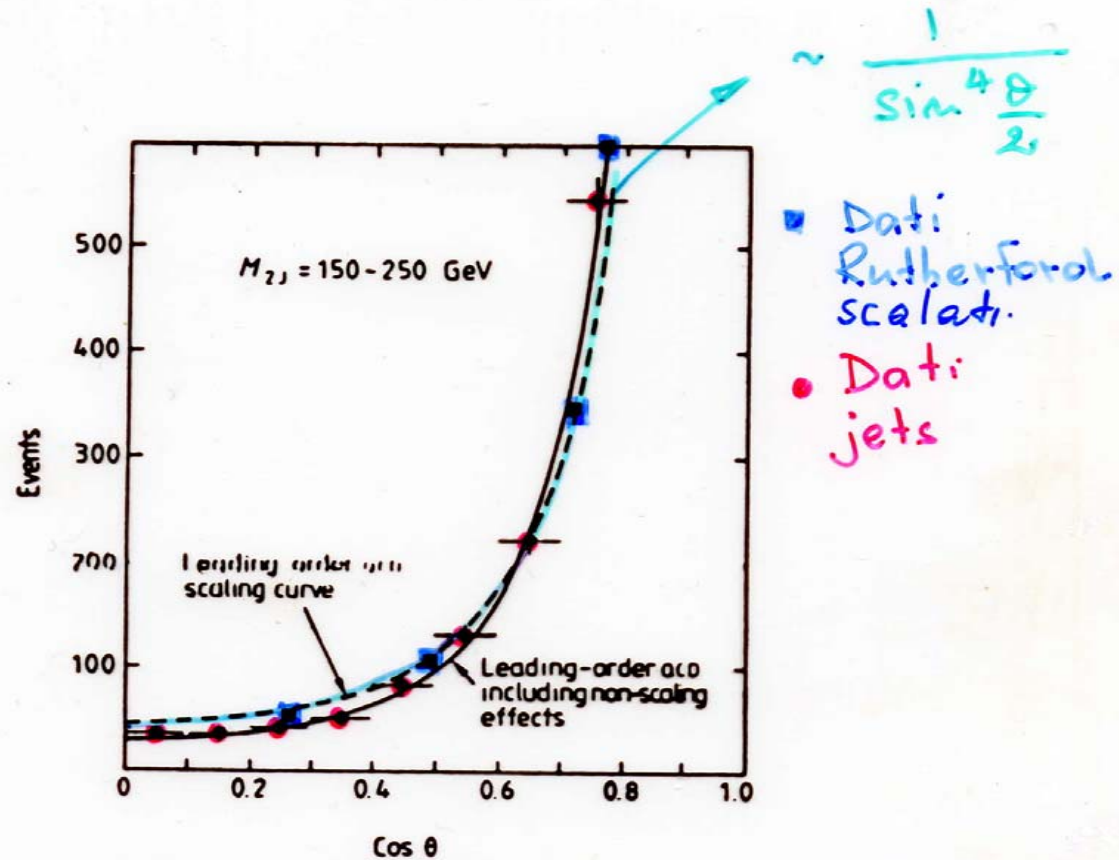 ~ 1
sin 4 θ
2
■ Dati
Rutherford
scalati.
● Dati
jets
500
400
300
200
100
Events
M2J = 150-250 GeV
Leading order
scaling curve
Leading-order QCD
including non-scaling
effects
0 0.2 0.4 0.6 0.8 1.0
Cos θ